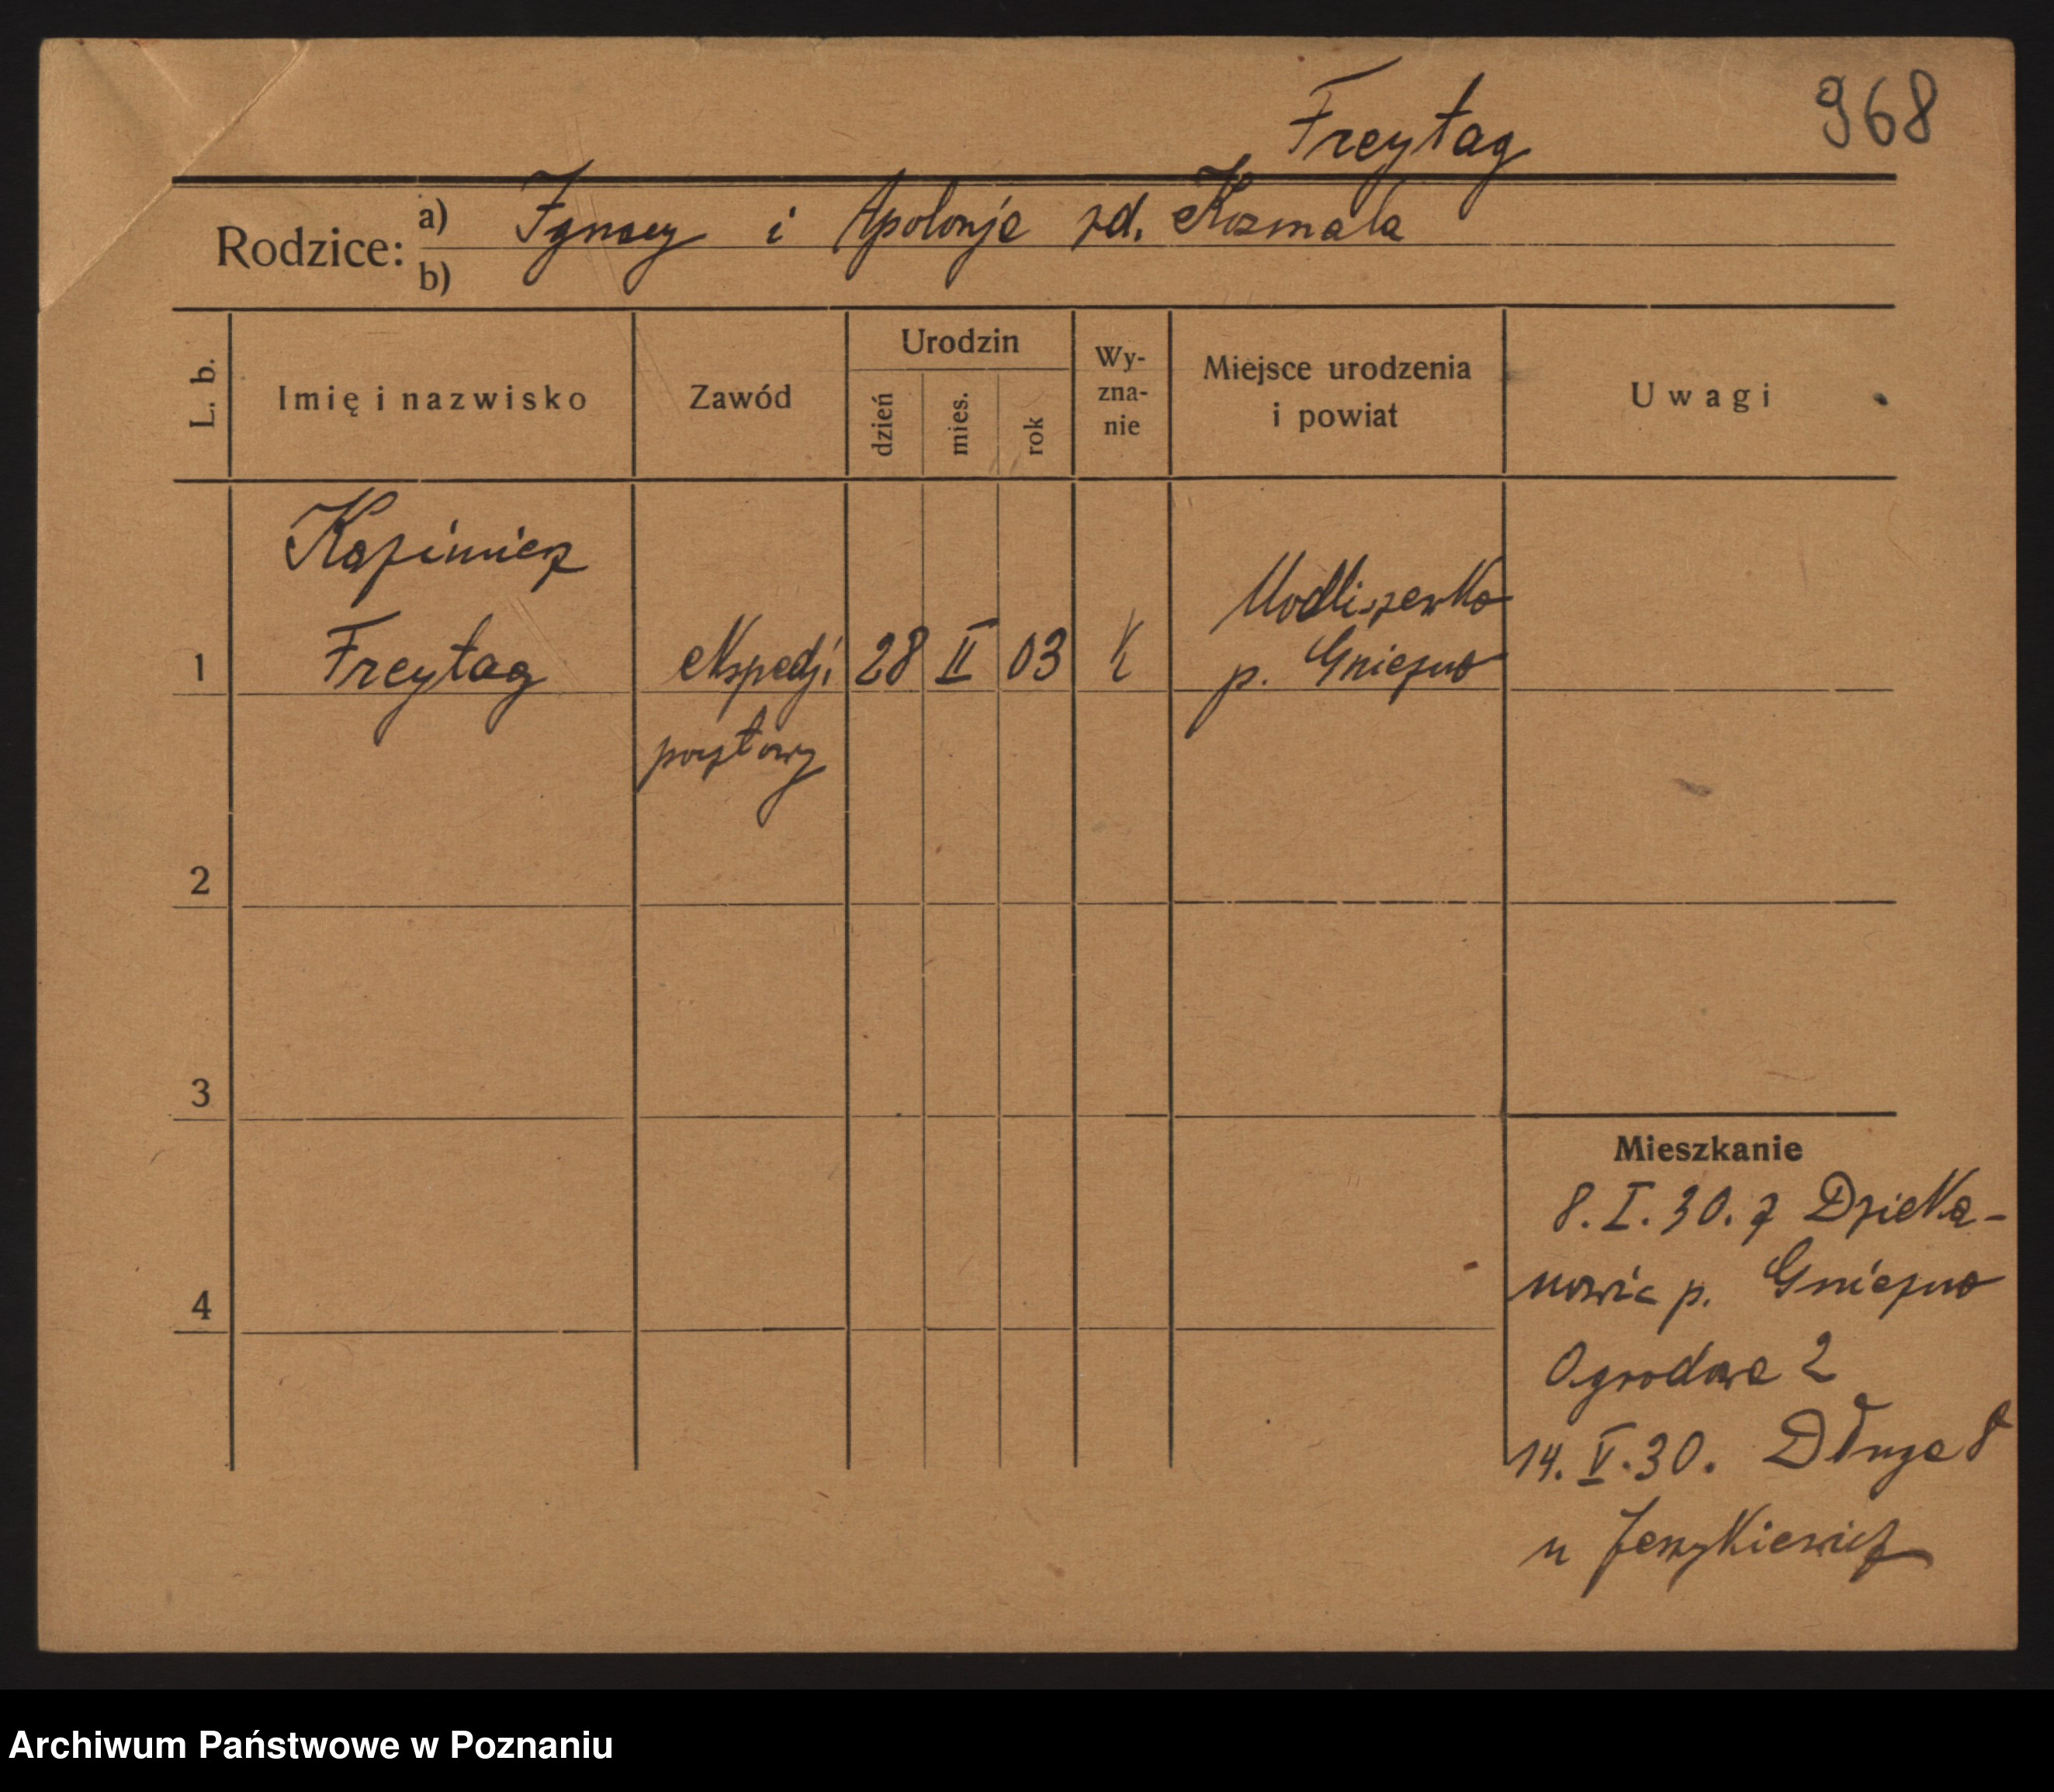 968
Freytag
Rodzice: a) Ignacy i Apolonja zd. Kozmala
b)
L. b.
Imię i nazwisko
Zawód
Urodzin
dzień
mies.
rok
Wy-
zna-
nie
Miejsce urodzenia
i powiat
Uwagi
Kazimierz
Modliszewko
1 Freytag ekspedj. 28 II 03 k p. Gniezno
pocztowy
2
3
4
Mieszkanie
8. I. 30. z Dzieka-
nowic p. Gniezno
Ogrodowa 2
14. V. 30. Długa 8
u Jerzykiewicz
Archiwum Państwowe w Poznaniu